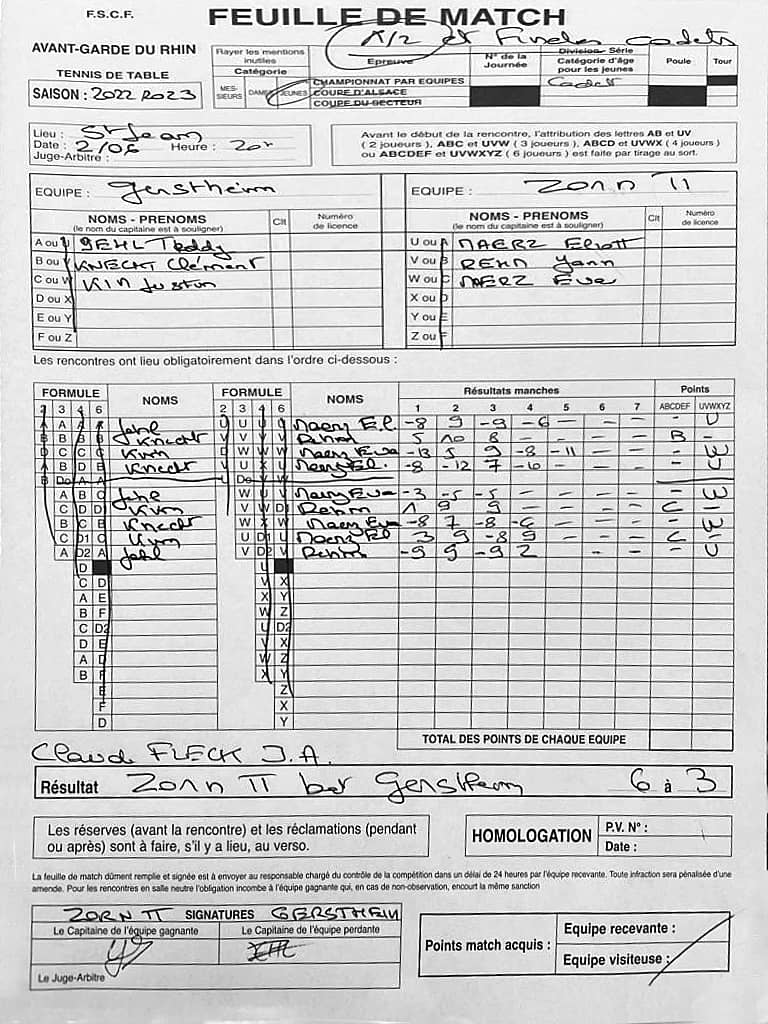 F.S.C.F. FEUILLE DE MATCH
AVANT-GARDE DU RHIN
TENNIS DE TABLE
SAISON : 2022 2023
Rayer les mentions inutiles
Catégorie
MES-SIEURS DAMES JEUNES
X/2 et Finales cadets
Epreuve N° de la Journée Division - Série Catégorie d'âge pour les jeunes Poule Tour
CHAMPIONNAT PAR EQUIPES Cadet
COUPE D'ALSACE
COUPE DU SECTEUR
Lieu : St Jean
Date : 2/06 Heure : 20h
Juge-Arbitre :
Avant le début de la rencontre, l'attribution des lettres AB et UV
( 2 joueurs ), ABC et UVW ( 3 joueurs ), ABCD et UVWX ( 4 joueurs )
ou ABCDEF et UVWXYZ ( 6 joueurs ) est faite par tirage au sort.
EQUIPE : Gerstheim EQUIPE : Zorn II
NOMS - PRENOMS (le nom du capitaine est à souligner) Clt Numéro de licence NOMS - PRENOMS (le nom du capitaine est à souligner) Clt Numéro de licence
A ou U JEHL Teddy U ou A MAERZ Eliott
B ou V KNECHT Clément V ou B REHM Yann
C ou W Kim Justin W ou C MAERZ Eva
D ou X X ou D
E ou Y Y ou E
F ou Z Z ou F
Les rencontres ont lieu obligatoirement dans l'ordre ci-dessous :
FORMULE NOMS FORMULE NOMS Résultats manches Points
2 3 4 6 2 3 4 6 1 2 3 4 5 6 7 ABCDEF UVWXYZ
A A A A Jehl U U U U Maerz El. -8 9 -9 -6 - - - - U
B B B B Knecht V V V V Rehm 5 10 8 - - - - B -
D C C C Kim D W W W Maerz Eva -13 5 9 -8 -11 - - - W
A B D B Knecht V U X U Maerz El. -8 -12 7 -6 - - - - U
B Do A A U Do V
A B C Jehl W U V Maerz Eva -3 -5 -5 - - - - - W
C D D Kim V W D1 Rehm 1 9 9 - - - - C -
B C B Knecht W X W Maerz Eva -8 7 -8 -6 - - - - W
C D1 C Kim U D1 U Maerz El 3 9 -8 9 - - - C -
A D2 A Jehl V D2 V Rehm -9 9 -9 2 - - - U
D U
C D V X
A E X Y
B F W Z
C D2 U D2
D E V X
A D W Z
B F X Y
E Z
F X
D Y
TOTAL DES POINTS DE CHAQUE EQUIPE
Claude FLECK J.A.
Résultat Zorn II bat Gerstheim 6 à 3
Les réserves (avant la rencontre) et les réclamations (pendant
ou après) sont à faire, s'il y a lieu, au verso.
HOMOLOGATION P.V. N° :
Date :
La feuille de match dûment remplie et signée est à envoyer au responsable chargé du contrôle de la compétition dans un délai de 24 heures par l'équipe recevante. Toute infraction sera pénalisée d'une
amende. Pour les rencontres en salle neutre l'obligation incombe à l'équipe gagnante qui, en cas de non-observation, encourt la même sanction
ZORN II SIGNATURES GERSTHEIM
Le Capitaine de l'équipe gagnante Le Capitaine de l'équipe perdante
Le Juge-Arbitre
Points match acquis : Equipe recevante :
Equipe visiteuse :